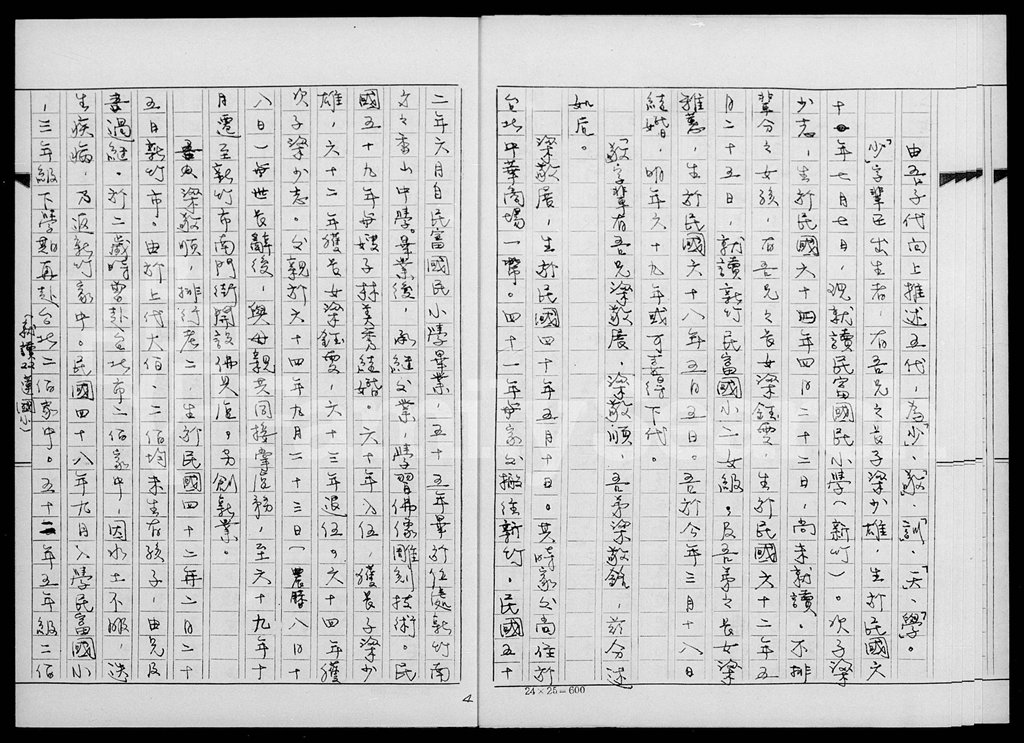 由吾子代向上推述五代，為「少」、「敬」、「訓」、「天」、「學」。
「少」字輩已出生者，有吾兄之長子梁少雄，生於民國六
十年七月七日，現就讀民富國民小學（新竹）。次子梁
少志，生於民國六十四年四月二十二日，尚未就讀。不排
輩分之女孩，有吾兄之長女梁鈺雯，生於民國六十二年五
月二十五日，就讀新竹民富國小二女級。及吾弟之長女梁
雅蕙，生於民國六十八年五月五日。吾於今年三月十八日
結婚，明年六十九年或可喜得下代。
「敬」字輩有吾兄梁敬展，梁敬順，吾弟梁敬銘，茲分述
如后。
梁敬展，生於民國四十年五月十日。其時家父尚住於
台北中華商場一帶。四十一年家父搬往新竹。民國五十
二年六月自民富國民小學畢業，五十五年畢於位處新竹南
方之香山中學。畢業後，承繼父業，學習佛像雕刻技術。民
國五十九年與嫂子林美秀結婚。六十年入伍，獲長子梁少
雄，六十二年獲長女梁鈺雯，六十三年退伍。六十四年獲
次子梁少志。父親於六十四年九月二十三日（農曆八月十
八日）與世長辭後，與母親共同接掌店務，至六十九年十
月遷至新竹市南門街開設佛具店，另創新業。
梁敬順，排行老二，生於民國四十二年二月二十
五日新竹市。由於上代大伯、二伯均未生有孩子，由兄及
吾過繼。於二歲時曾赴台北市二伯家中，因水土不服，迭
生疾病，乃返新竹家中。民國四十八年九月入學民富國小
，三年級下學期再赴台北二伯家中。五十二年五年級二伯
（就讀蓬國小）
4
24×25＝600